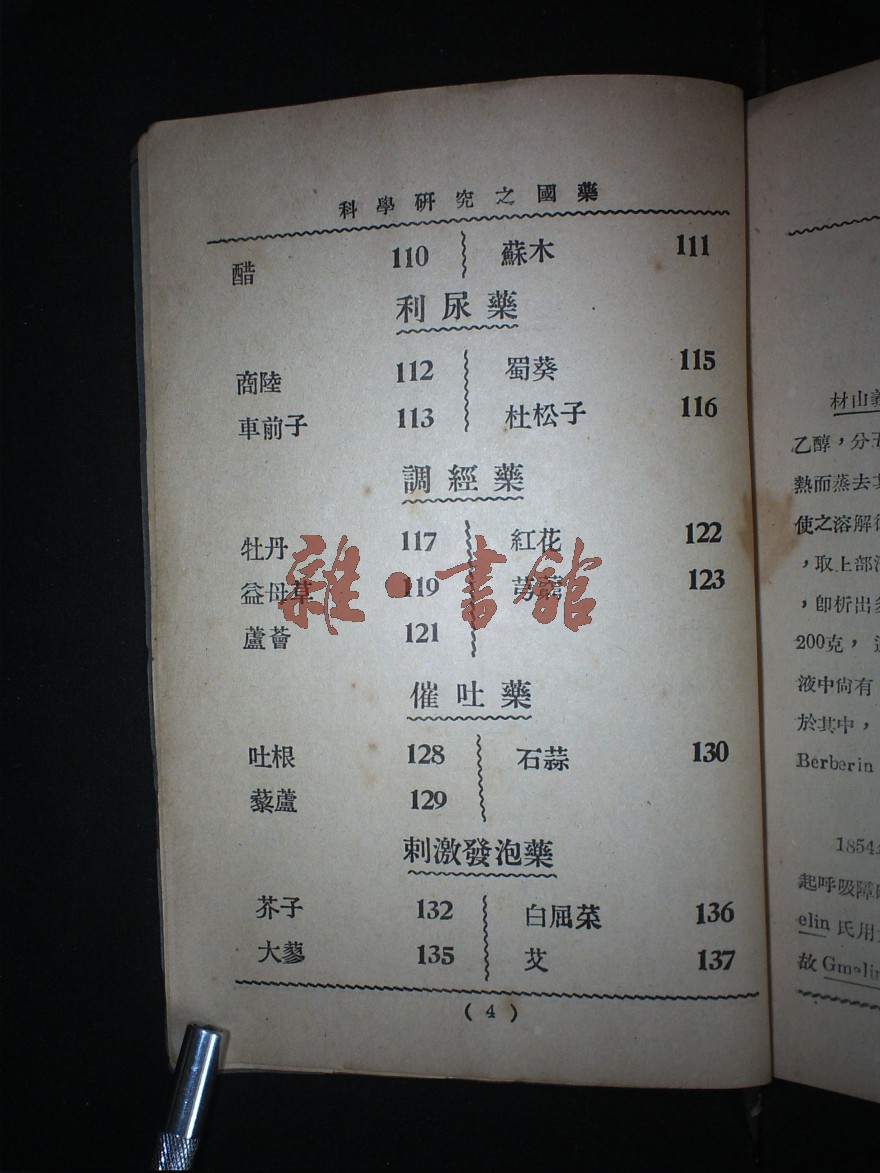 科學研究之國藥
醋 110 蘇木 111
利尿藥
商陸 112 蜀葵 115
車前子 113 杜松子 116
調經藥
牡丹 117 紅花 122
益母草 119 芎藭 123
蘆薈 121
催吐藥
吐根 128 石蒜 130
藜蘆 129
刺激發泡藥
芥子 132 白屈菜 136
大蓼 135 艾 137
( 4 )
雜·書館
材山義
乙醇，分五
熱而蒸去其
使之溶解後
，取上部
，卽析出多
200克，
液中尙有
於其中，
Berberin
1854年
起呼吸障
elin 氏用
故 Gmelin